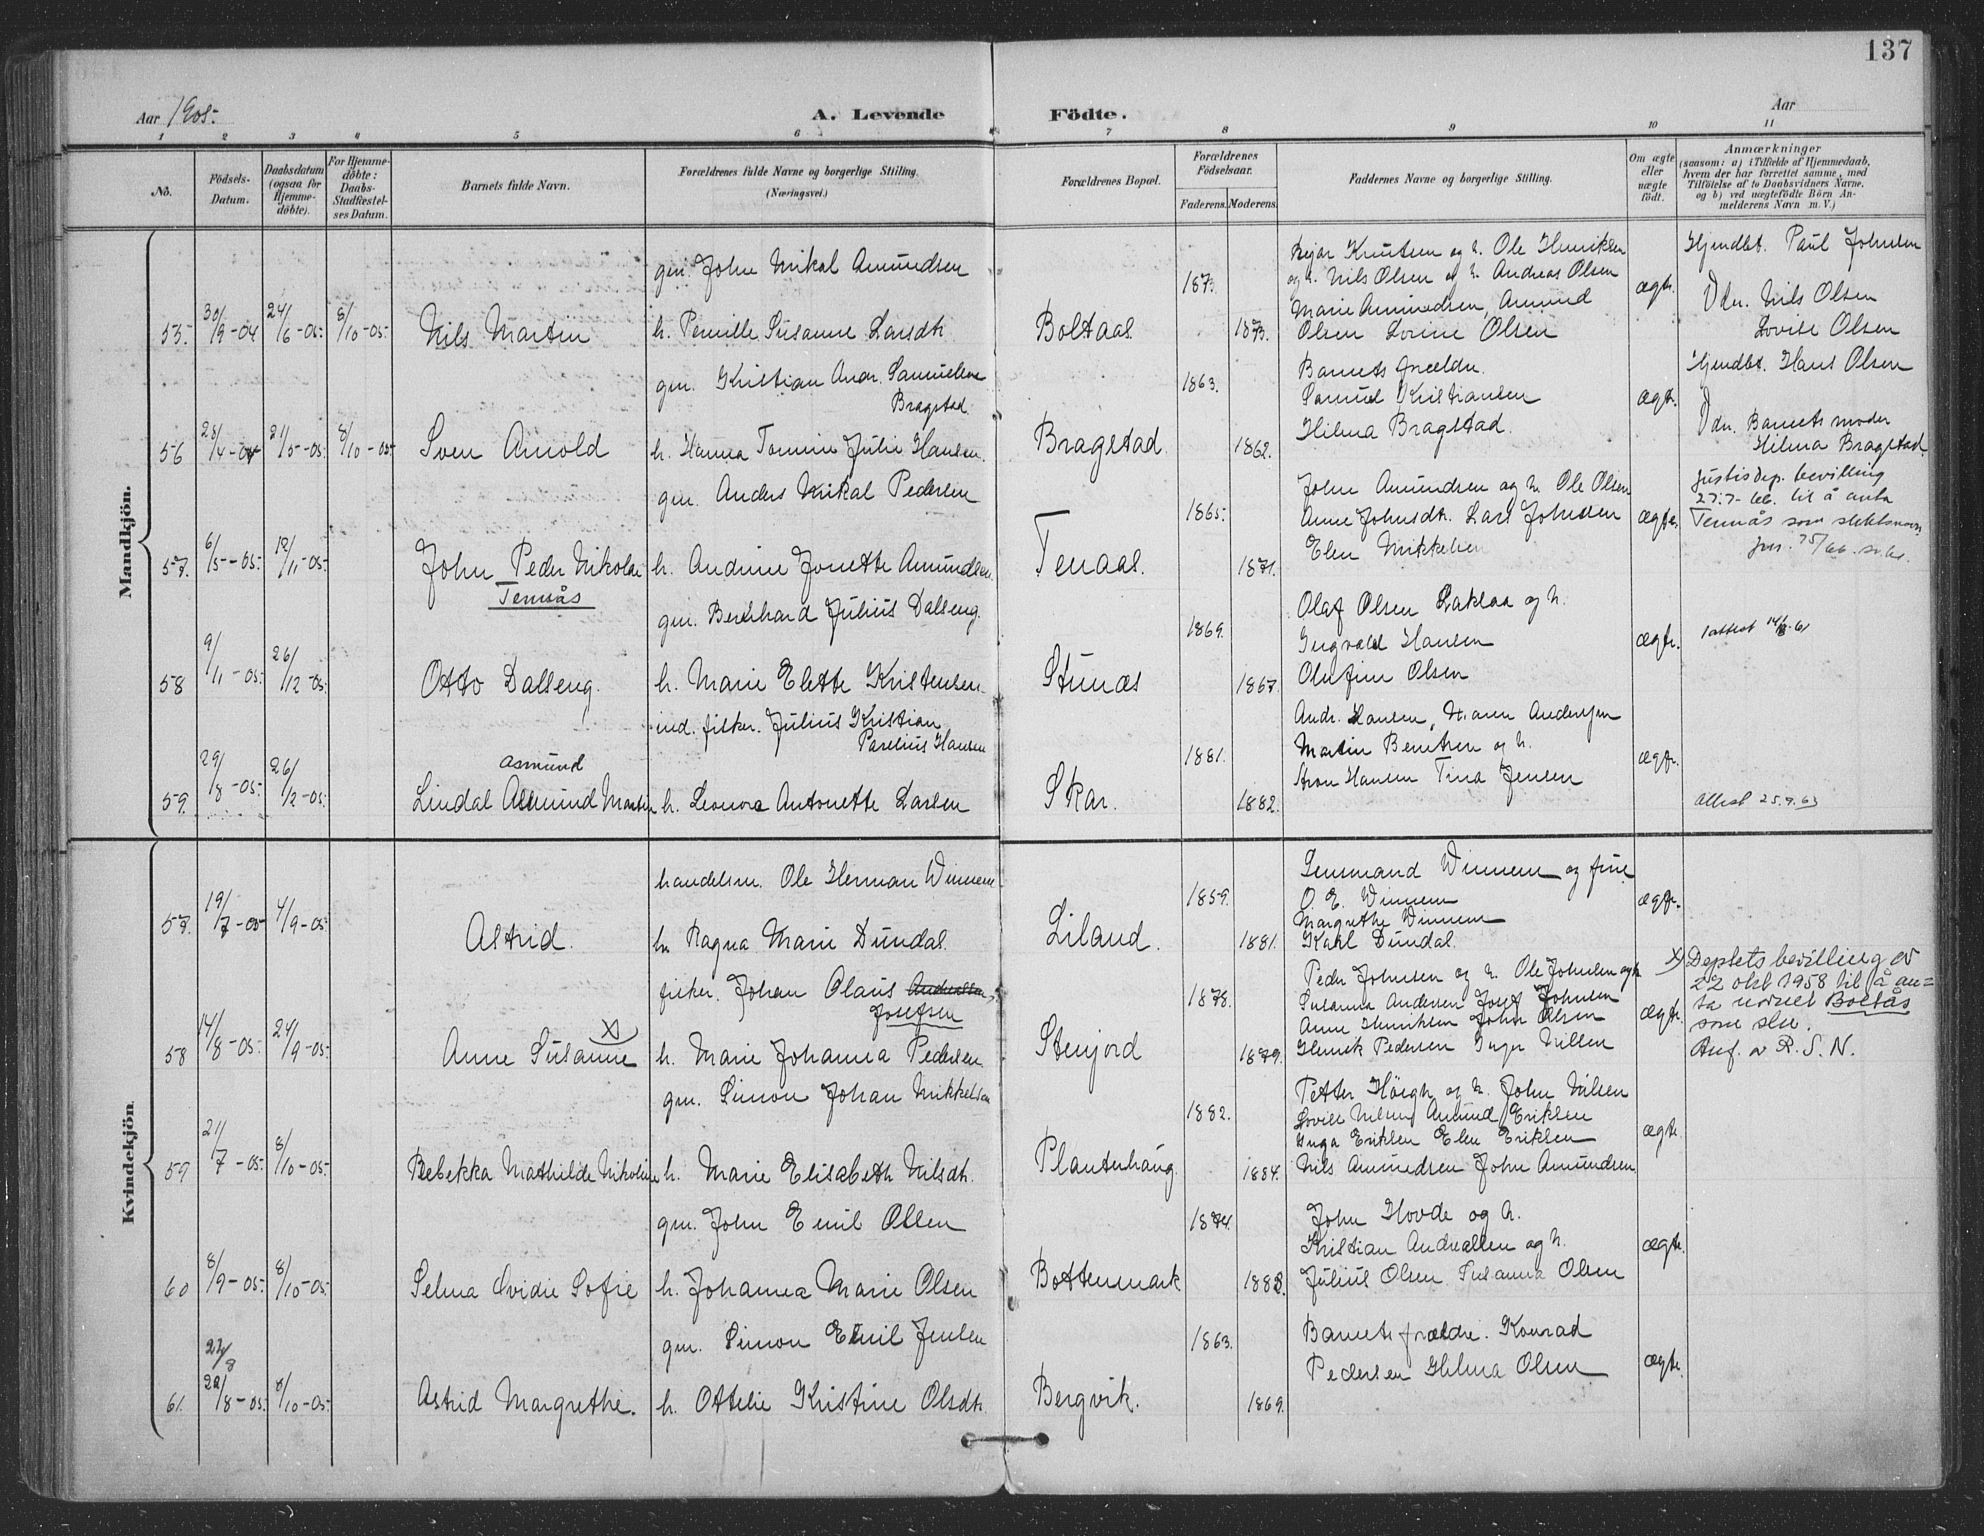 137
Aar 1905.
A. Levende Födte.
Aar
1 2 3 4 5 6 7 8 9 10 11
No.
Födsels-Datum.
Daabsdatum (ogsaa for Hjemmedöbte).
For Hjemmedöbte: Daabs-Stadfestelses Datum.
Barnets fulde Navn.
Forældrenes fulde Navne og borgerlige Stilling. (Næringsvei.)
Forældrenes Bopæl.
Forældrenes Födselsaar.
Faderens. Moderens.
Faddernes Navne og borgerlige Stilling.
Om ægte eller uægte födt.
Anmærkninger
(saasom: a) i Tilfælde af Hjemmedaab, hvem der har forrettet samme, med Tilföielse af to Daabsvidners Navne, og b) ved uægtefödte Börn Anmelderens Navn m. V.)
Mandkjön.
gm. John Mikal Amundsen
187
Knutsen og h. Ole Henriksen
og h. Nils Olsen og h. Andreas Olsen
Marie Amundsen, Amund
ægte.
Hjmdbt. Paul Johnsen
Vdn. Nils Olsen
Lovise Olsen
55. 30/9-04 24/6-05. 8/10-05. Nils Martin h. Pernille Susanne Larsdtr. Boltaas 1873. Olsen Lovine Olsen
gm. Kristian Andr. Samuelsen
Bragstad
1863.
Barnets forældre.
Samuel Kristiansen
ægte.
Hjmdbt. Hans Olsen
Vdn. Barnets moder
Hilma Bragstad.
56 /4-04 21/5-05. 8/10-05 Sven Arnold h. Hanna Tomine Julie Hansen. Bragstad 1862. Hilma Bragstad.
gm. Anders Mikal Pedersen
1865.
John Amundsen og h. Ole Olsen
Anne Johnsdtr. Lars Johnsen
ægte.
Justisdep. bevilling
27.7-66. til å anta
Tennås som slektsnavn
jnr. 75/66.
57. 6/5-05. 12/11-05. John Peder Nikolai h. Andrine Jonette Amundsen. Tenaas. 1871. Elen Mikkelsen
Tennås
gm. Bernhard Julius Dalseng.
1869.
Olaf Olsen Laksaa og h.
Ingvald Hansen
ægte.
1 attest 14/8-61
58 9/11-05. 26/12-05. Otto Dalseng. h. Marie Elette Kristensen. Stunæs 1867. Olufine Olsen
ind. fisker. Julius Kristian
Parelius Hansen
1881.
Andr. Hansen, Karen Andersen
Martin Berntsen og h.
ægte.
Asmund
59. 29/8-05. 26/2-05. Lindal Asmund Martin h. Leonora Antonette Larsen Skar. 1882. Hansen Tina Jensen
Attest 25.9.63
Kvindekjön.
handelsm. Ole Herman Winnem
1859.
Winnem og frue
O. E. Winnem
Margrethe Winnem
ægte.
57. 19/7-05 4/9-05. Astrid. h. Ragna Marie Dundal. Liland. 1881. Karl Dundal.
fisker. Johan Olaus Andreassen
Josefsen
1878.
Peder Johnsen og h. Ole Johnsen og h.
Susanna Andersen Josef Johnsen
Anne Henriksen John Olsen
ægte.
x) Deptets bevilling av
22 okt 1958 til å an=
ta navnet Boltås
som sln.
Anf. av R. S. N.
58 14/8-05. 24/9-05. Anne Susanne x) h. Marie Johanna Pedersen Stenjord 1879. Henrik Pedersen Inger Nilsen
gm. Simon Johan Mikkelsen
1882.
Petter Höigh og h. John Nilsen
Lovise Nilsen Amund Eriksen
Inga Eriksen Elen Eriksen
ægte.
59 21/7-05. 8/10-05. Rebekka Mathilde Nikoline h. Marie Elisabeth Nilsdtr. Planterhaug 1884. Nils Amundsen John Amundsen
gm. John Emil Olsen
1874.
John Hovde og h.
Kristian Andreassen og h.
ægte.
60 8/9-05. 8/10-05. Selma Ovidie Sofie h. Johanna Marie Olsen Bottenmark 1883. Julius Olsen. Susanna Olsen
gm. Simon Emil Jensen
1863.
Barnets forældre. Konrad
Pedersen Hilma Olsen
ægte.
22/8
61. 22/8-05. 8/10-05. Astrid Margrethe. h. Ottelie Kristine Olsdtr. Bergvik. 1869.